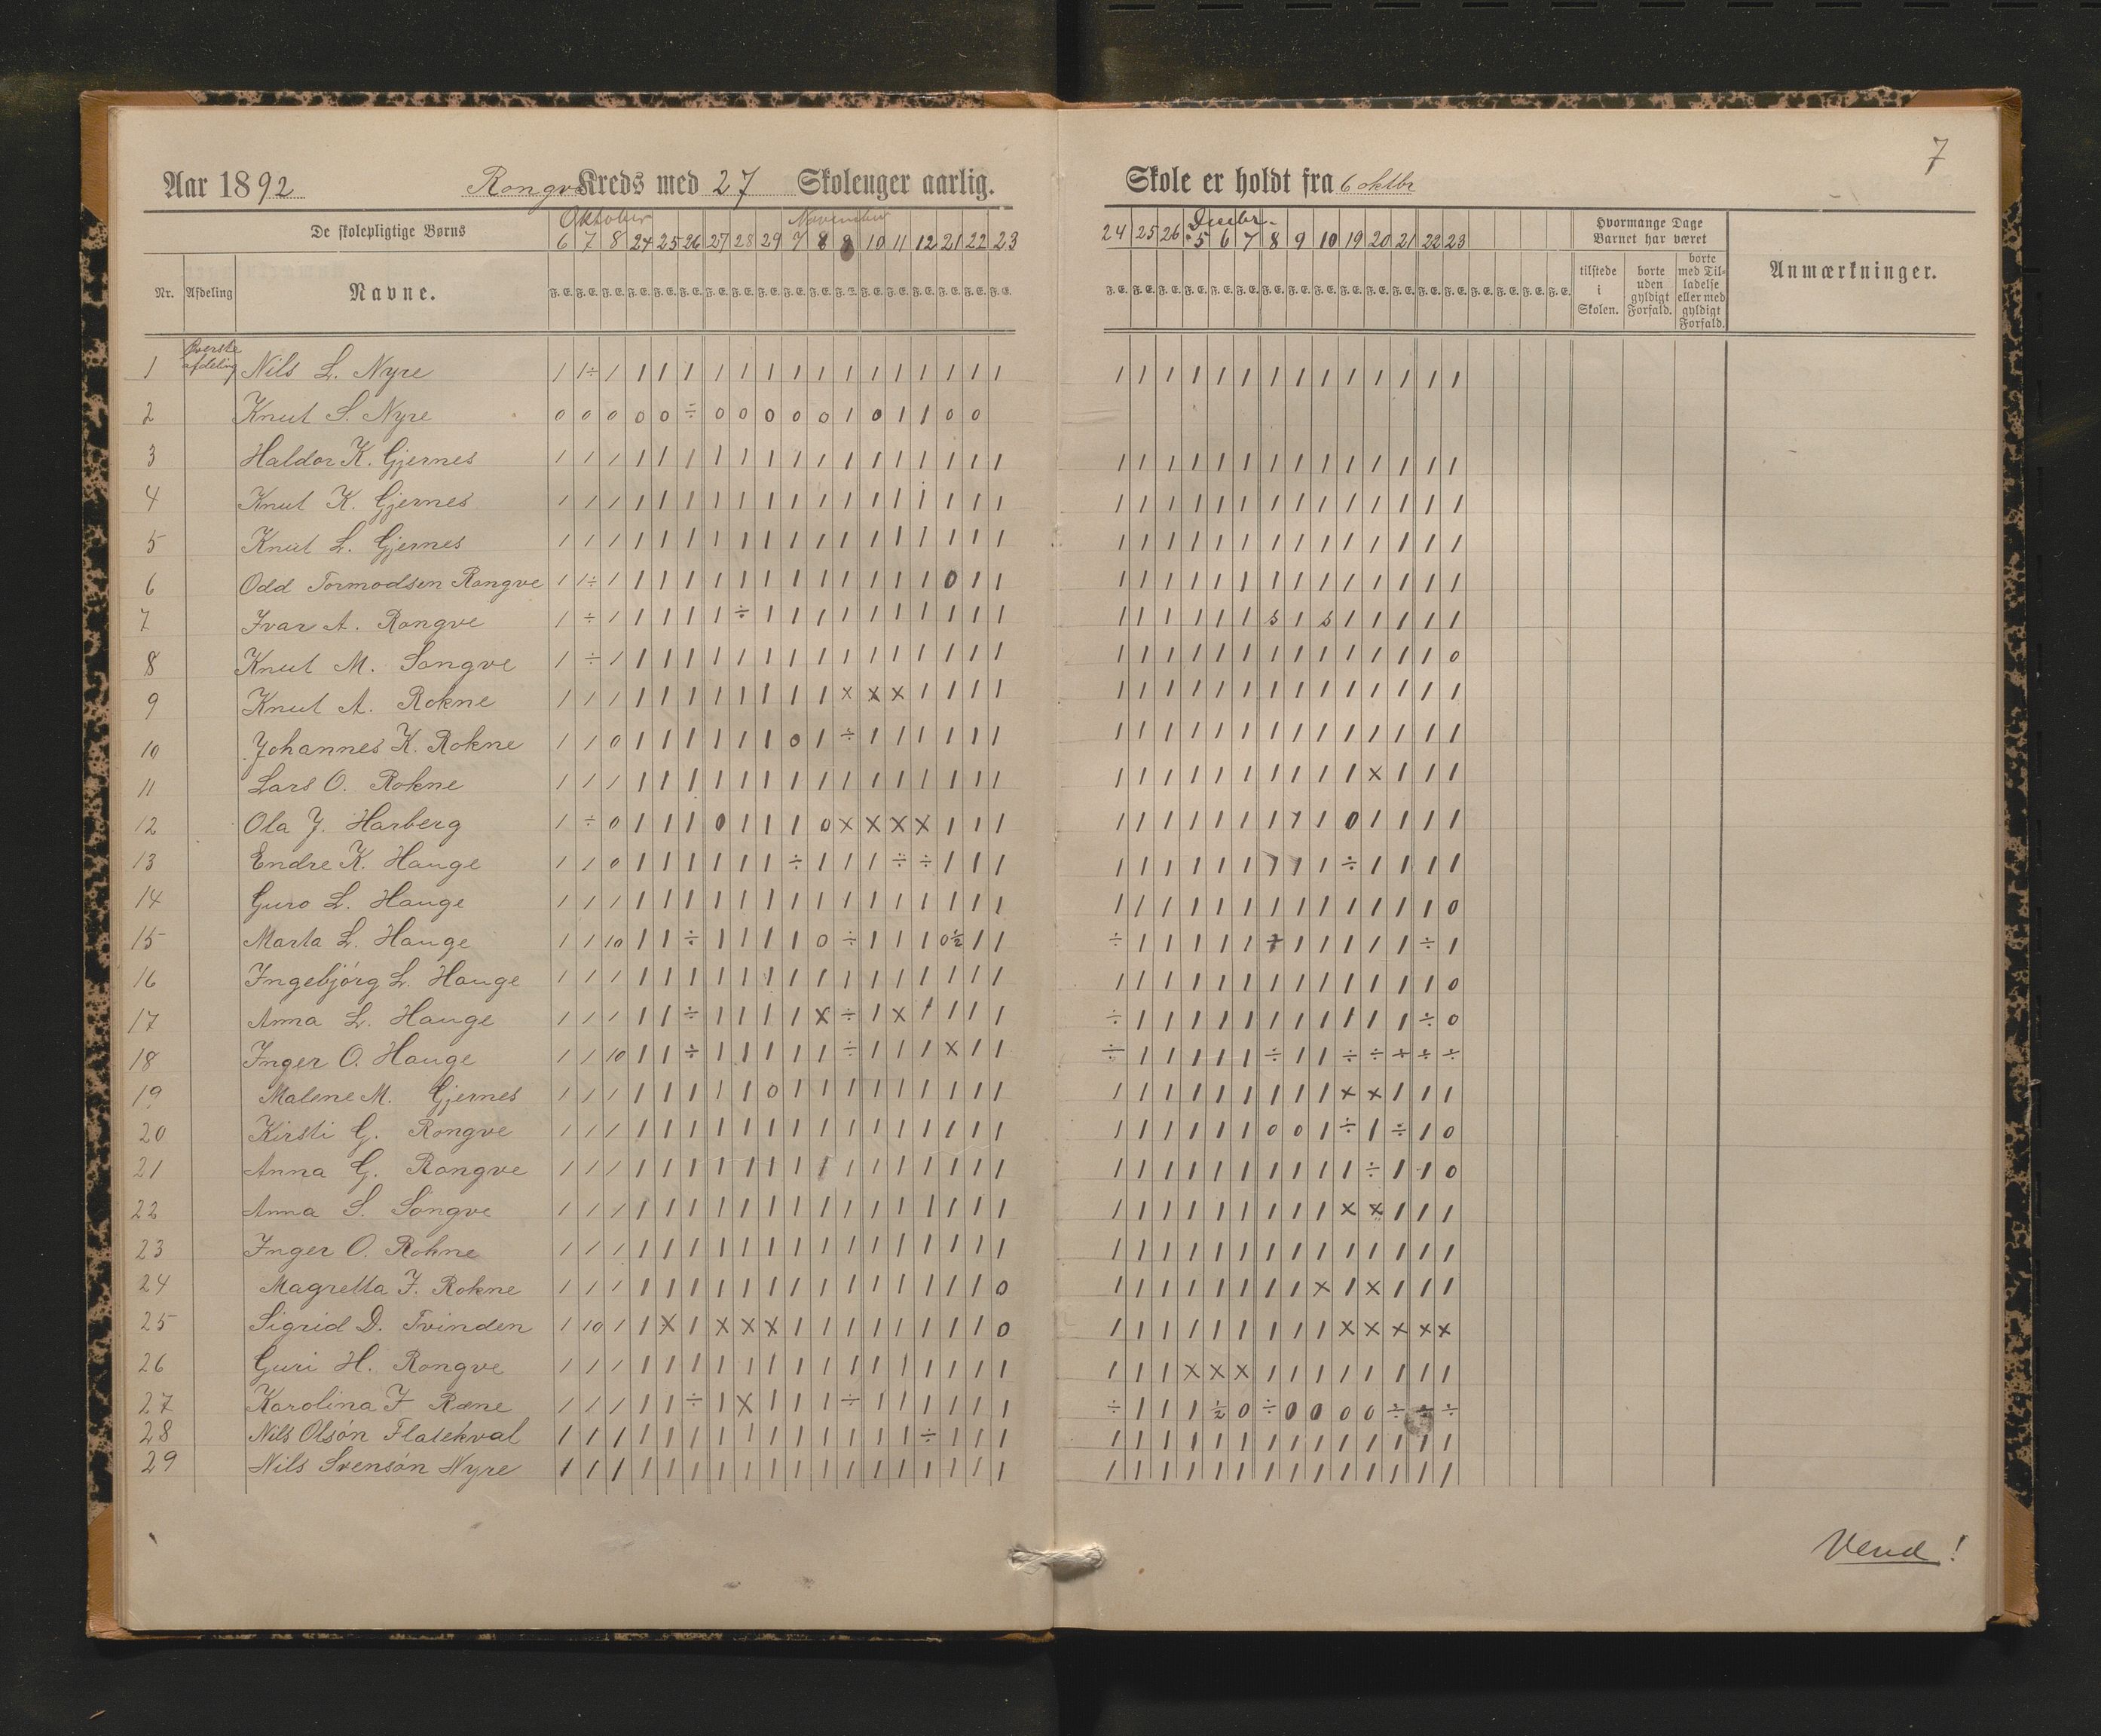 7
Aar 1892 Rongve Kreds med 27 Skoleuger aarlig. Skole er holdt fra 6 oktbr
De skolepligtige Børns
Oktober November
6 7 8 24 25 26 27 28 29 7 8 9 10 11 12 21 22 23
Decbr.
24 25 26 5 6 7 8 9 10 19 20 21 22 23
Hvormange Dage Barnet har været
Nr. Afdeling Navne.
F. E. F. E. F. E. F. E. F. E. F. E. F. E. F. E. F. E. F. E. F. E. F. E. F. E. F. E. F. E. F. E. F. E. F. E.
F. E. F. E. F. E. F. E. F. E. F. E. F. E. F. E. F. E. F. E. F. E. F. E. F. E. F. E. F. E. F. E. F. E. F. E.
tilstede i Skolen.
borte uden gyldigt Forfald.
borte med Tilladelse eller med gyldigt Forfald.
Anmærkninger.
Øverste afdeling
1 Nils L. Nyre 1 1÷ 1 1 1 1 1 1 1 1 1 1 1 1 1 1 1 1 1 1 1 1 1 1 1 1 1 1 1 1 1 1
2 Knut S. Nyre 0 0 0 0 0 ÷ 0 0 0 0 0 1 0 1 1 0 0
3 Haldor K. Gjernes 1 1 1 1 1 1 1 1 1 1 1 1 1 1 1 1 1 1 1 1 1 1 1 1 1 1 1 1 1 1 1 1
4 Knut K. Gjernes 1 1 1 1 1 1 1 1 1 1 1 1 1 1 1 1 1 1 1 1 1 1 1 1 1 1 1 1 1 1 1 1
5 Knut L. Gjernes 1 1 1 1 1 1 1 1 1 1 1 1 1 1 1 1 1 1 1 1 1 1 1 1 1 1 1 1 1 1 1 1
6 Odd Tormodsen Rongve 1 1÷ 1 1 1 1 1 1 1 1 1 1 1 1 1 0 1 1 1 1 1 1 1 1 1 1 1 1 1 1 1 1
7 Ivar A. Rongve 1 ÷ 1 1 1 1 1 ÷ 1 1 1 1 1 1 1 1 1 1 1 1 1 1 1 1 s 1 s 1 1 1 1 1
8 Knut M. Songve 1 ÷ 1 1 1 1 1 1 1 1 1 1 1 1 1 1 1 1 1 1 1 1 1 1 1 1 1 1 1 1 1 0
9 Knut A. Rokne 1 1 1 1 1 1 1 1 1 1 1 x x x 1 1 1 1 1 1 1 1 1 1 1 1 1 1 1 1 1 1
10 Johannes K. Rokne 1 1 0 1 1 1 1 1 1 0 1 ÷ 1 1 1 1 1 1 1 1 1 1 1 1 1 1 1 1 1 1 1 1
11 Lars O. Rokne 1 1 1 1 1 1 1 1 1 1 1 1 1 1 1 1 1 1 1 1 1 1 1 1 1 1 1 1 x 1 1 1
12 Ola J. Harberg 1 ÷ 0 1 1 1 0 1 1 1 0 x x x x 1 1 1 1 1 1 1 1 1 1 1 1 0 1 1 1 1
13 Endre K. Hauge 1 1 0 1 1 1 1 1 1 ÷ 1 1 1 ÷ ÷ 1 1 1 1 1 1 1 1 1 7 7 1 ÷ 1 1 1 1
14 Guro L. Hauge 1 1 1 1 1 1 1 1 1 1 1 1 1 1 1 1 1 1 1 1 1 1 1 1 1 1 1 1 1 1 1 0
15 Marta L. Hauge 1 1 10 1 1 ÷ 1 1 1 1 0 ÷ 1 1 1 0½ 1 1 ÷ 1 1 1 1 1 7 1 1 1 1 1 ÷ 1
16 Ingebjørg L. Hauge 1 1 1 1 1 1 1 1 1 1 1 1 1 1 1 1 1 1 1 1 1 1 1 1 1 1 1 1 1 1 1 0
17 Anna L. Hauge 1 1 1 1 1 ÷ 1 1 1 1 x ÷ 1 x 1 1 1 1 ÷ 1 1 1 1 1 1 1 1 1 1 1 ÷ 0
18 Inger O. Hauge 1 1 10 1 1 ÷ 1 1 1 1 1 ÷ 1 1 1 x 1 1 ÷ 1 1 1 1 1 ÷ 1 1 ÷ ÷ ÷ ÷ ÷
19 Malene M. Gjernes 1 1 1 1 1 1 1 1 0 1 1 1 1 1 1 1 1 1 1 1 1 1 1 1 1 1 1 x x 1 1 1
20 Kirsti G. Rongve 1 1 1 1 1 1 1 1 1 1 1 1 1 1 1 1 1 1 1 1 1 1 1 1 0 0 1 ÷ 1 ÷ 1 0
21 Anna G. Rongve 1 1 1 1 1 1 1 1 1 1 1 1 1 1 1 1 1 1 1 1 1 1 1 1 1 1 1 1 ÷ 1 1 0
22 Anna S. Songve 1 1 1 1 1 1 1 1 1 1 1 1 1 1 1 1 1 1 1 1 1 1 1 1 1 1 1 x x 1 1 1
23 Inger O. Rokne 1 1 1 1 1 1 1 1 1 1 1 1 1 1 1 1 1 1 1 1 1 1 1 1 1 1 1 1 1 1 1 1
24 Magretta I. Rokne 1 1 1 1 1 1 1 1 1 1 1 1 1 1 1 1 1 0 1 1 1 1 1 1 1 1 x 1 x 1 1 1
25 Sigrid D. Tvinden 1 10 1 1 x 1 x x x 1 1 1 1 1 1 1 1 0 1 1 1 1 1 1 1 1 1 x x x x x
26 Guri H. Rongve 1 1 1 1 1 1 1 1 1 1 1 1 1 1 1 1 1 1 1 1 1 x x x 1 1 1 1 1 1 1 1
27 Karolina I Rene 1 1 1 1 1 ÷ 1 x 1 1 1 ÷ 1 1 1 1 1 1 ÷ 1 1 1 ½ 0 ÷ 0 0 0 0 ÷ ÷ ÷
28 Nils Olsón Flatekval 1 1 1 1 1 1 1 1 1 1 1 1 1 1 ÷ 1 1 1 1 1 1 1 1 1 1 1 1 1 1 1 1 1
29 Nils Svensón Nyre 1 1 1 1 1 1 1 1 1 1 1 1 1 1 1 1 1 1 1 1 1 1 1 1 1 1 1 1 1 1 1 1
Vend!